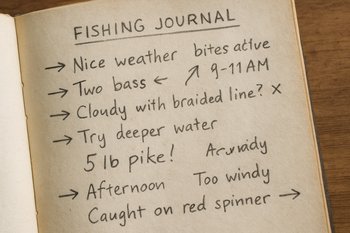 FISHING JOURNAL
→ Nice weather bites
→ Two bass ← ↗ 9-11 AM
→ Cloudy with braided line? x
→ Try deeper water
5 lb pike!
→ Afternoon Too windy
Caught on red spinner →